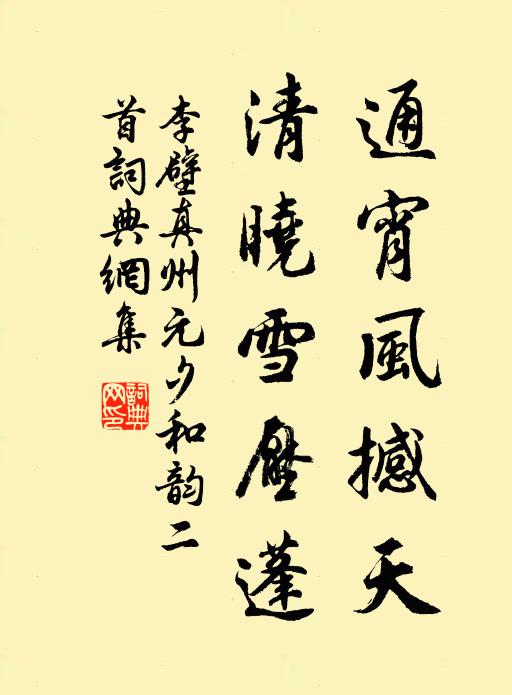 通宵風撼天
清曉雪壓蓬
李壁真州元夕和韵二
首詞典網集
詞典網印